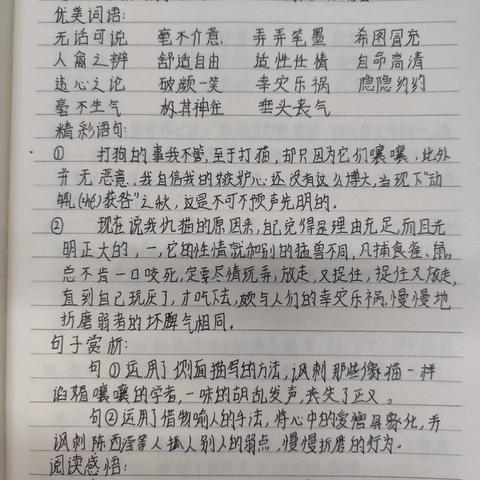 优美词语:
无话可说 毫不介意 弄弄笔墨 希图冒充
人禽之辨 舒适自由 适性任情 自命高清
违心之论 破颜一笑 幸灾乐祸 隐隐约约
毫不生气 极其神往 垂头丧气
精彩语句:
① 打狗的事我不管,至于打猫,却只因为它们嚷嚷,此外
并无恶意,我自信我的嫉妒心还没有这么博大,当现下"动
辄(zhé)获咎"之秋,这是不可不预声先明的。
② 现在说我仇猫的原因来,自己觉得是理由充足,而且光
明正大的,一,它的性情就和别的猛兽不同,凡捕食雀、鼠,
总不肯一口咬死,定要尽情玩弄,放走,又捉住,捉住又放走,
直到自己玩厌了,才吃下去,颇与人们的幸灾乐祸,慢慢地
折磨弱者的坏脾气相同。
句子赏析:
句①运用了侧面描写的方法,讽刺那些像猫一样
的嚷嚷的学者,一味的胡乱发声,丧失了正义。
句②运用了借物喻人的手法,将心中的爱憎具象化,弄
讽刺陈西滢等人抓人别人的弱点,慢慢折磨的行为。
阅读感悟: